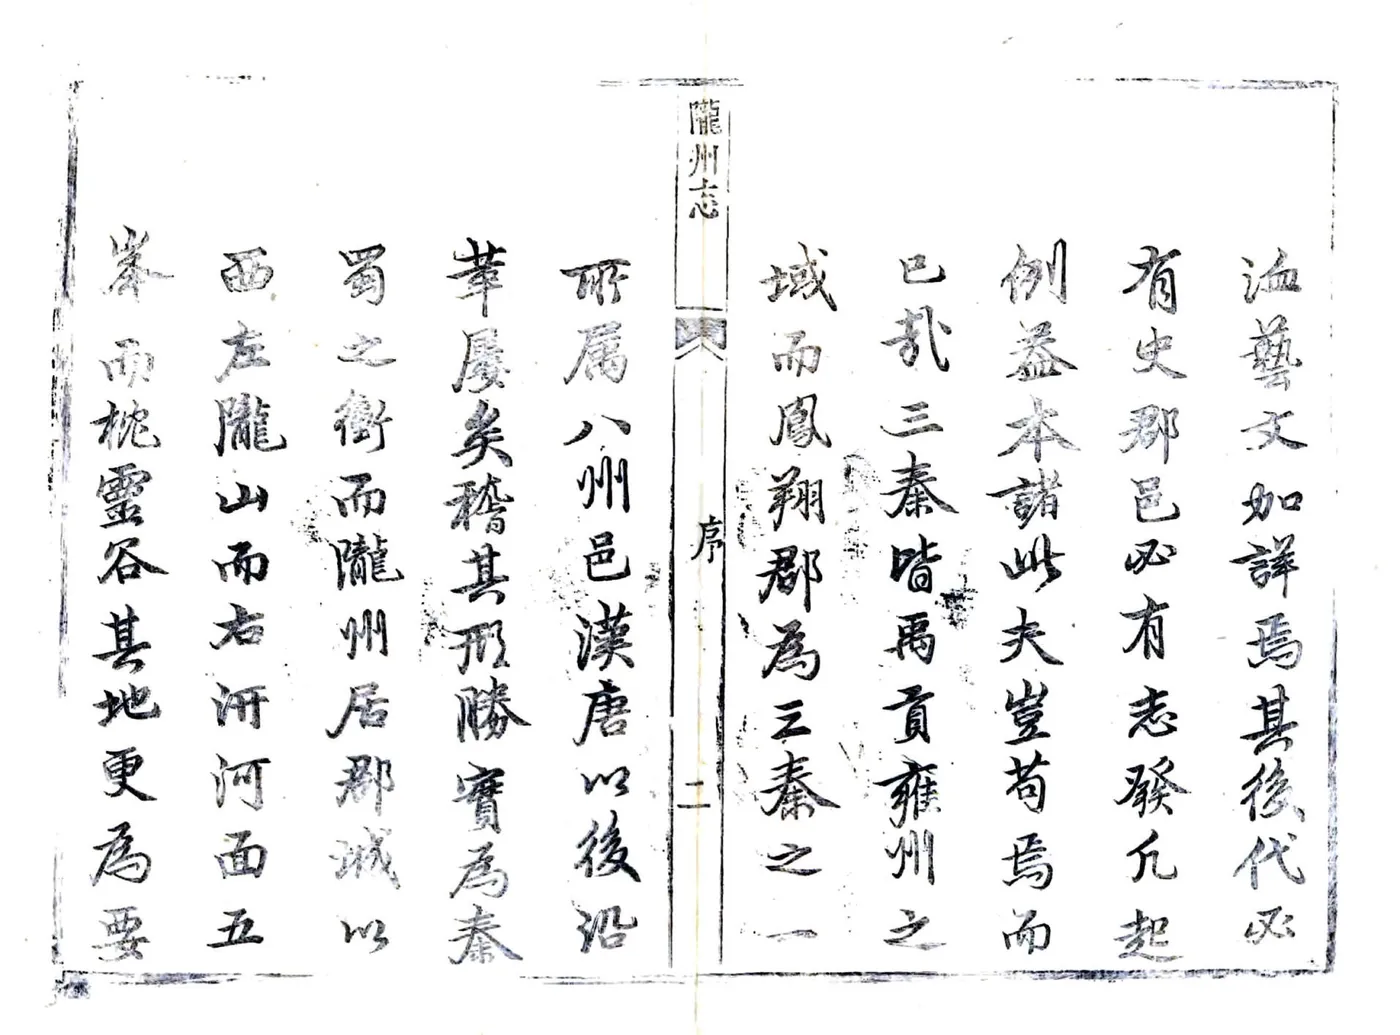 洫藝文加詳焉其後代必
有史郡邑必有志發凡起
例益本諸此夫豈苟焉而
已哉三秦皆禹貢雍州之
域而鳳翔郡為三秦之一
隴州志
序
二
所属八州邑漢唐以後沿
革屡矣稽其形勝實為秦
蜀之衝而隴州居郡城以
西左隴山而右汧河面五
峯而枕靈谷其地更為要